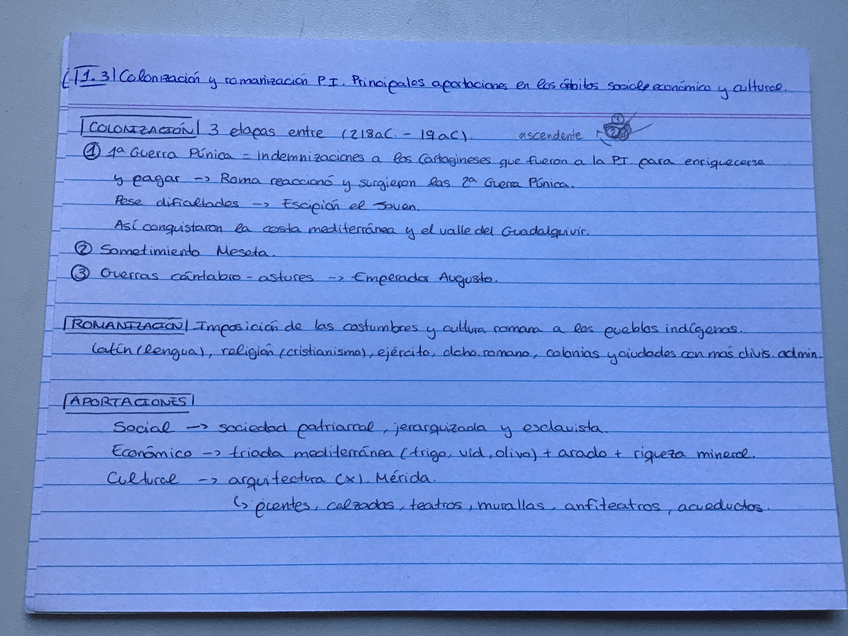 1.3 Colonización y romanización P.I. Principales aportaciones en los ámbitos social, económico y cultural.
COLONIZACIÓN 3 etapas entre (218aC. - 19aC). ascendente
① 1ª Guerra Púnica = Indemnizaciones a los Cartagineses que fueron a la P.I. para enriquecerse
y pagar -> Roma reaccionó y surgieron las 2ª Guerra Púnica.
Pese dificultades -> Escipión el Joven.
Así conquistaron la costa mediterránea y el valle del Guadalquivir.
② Sometimiento Meseta.
③ Guerras cántabro - astures -> Emperador Augusto.
ROMANIZACIÓN Imposición de las costumbres y cultura romana a los pueblos indígenas.
Latín (lengua), religión (cristianismo), ejército, dcho. romano, colonias y ciudades con más divis. admin.
APORTACIONES
Social -> sociedad patriarcal, jerarquizada y esclavista.
Económico -> triada mediterránea (trigo, vid, olivo) + arado + riqueza mineral.
Cultural -> arquitectura (x). Mérida.
↳ puentes, calzadas, teatros, murallas, anfiteatros, acueductos.